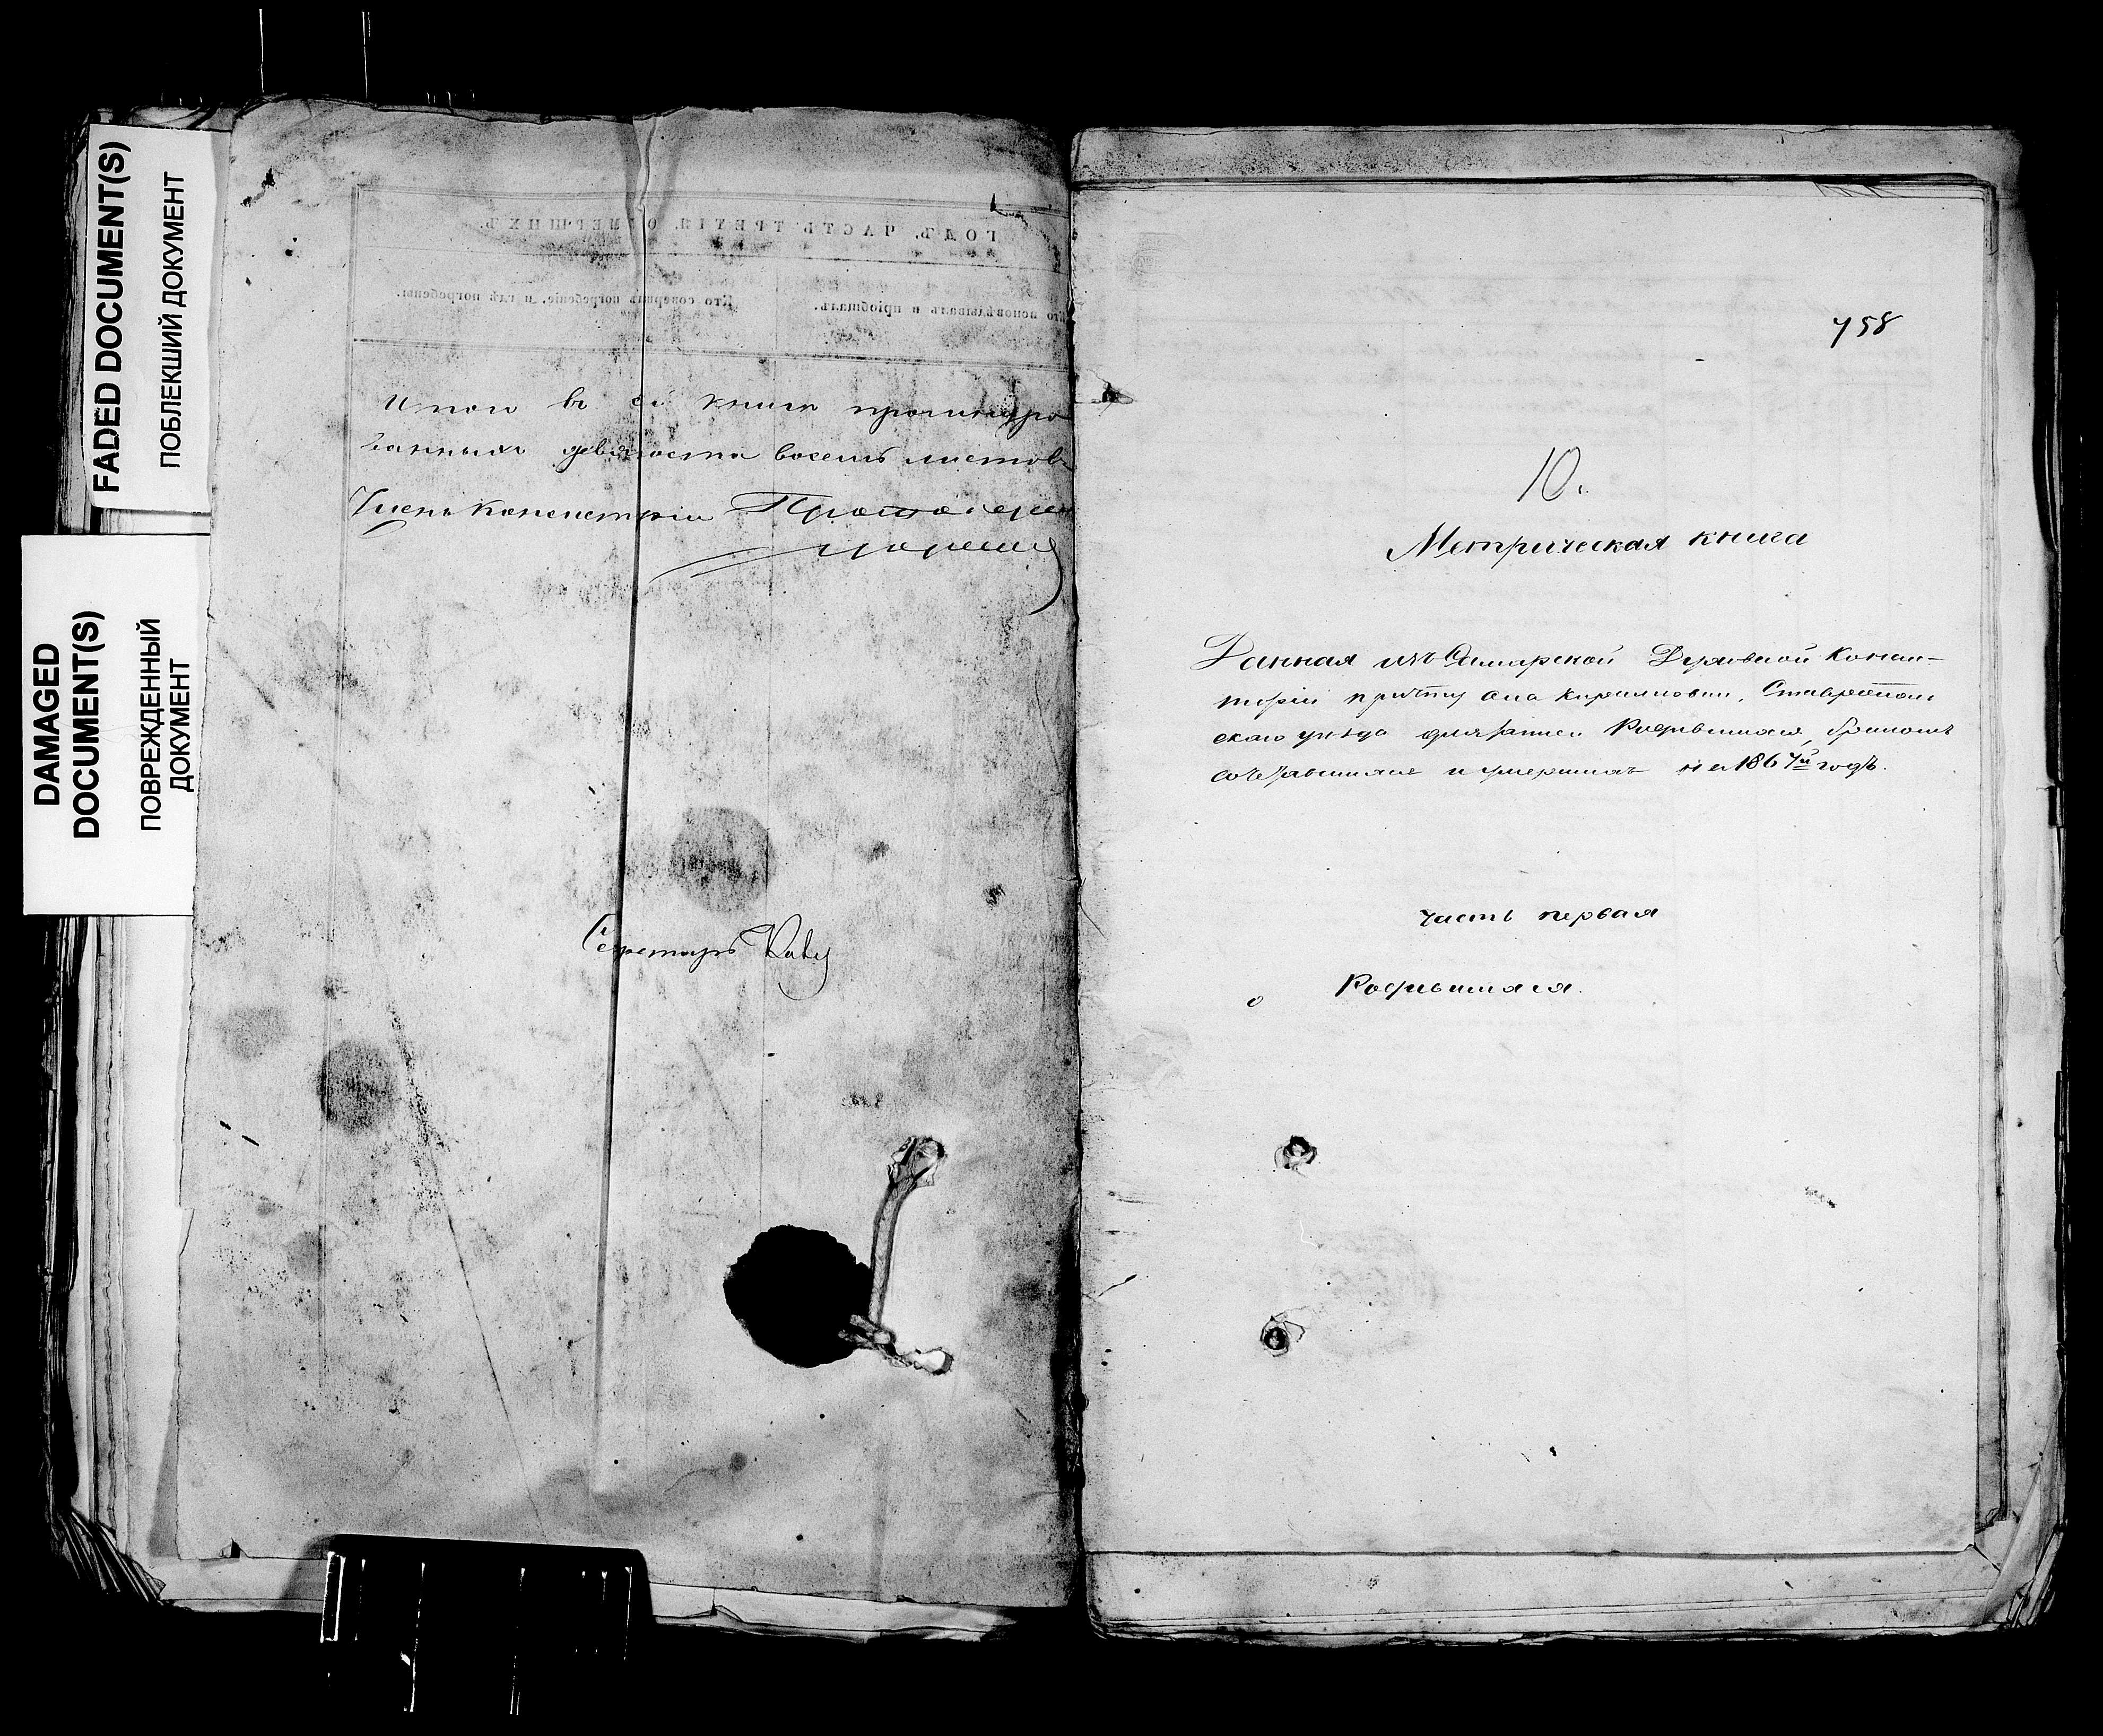 FADED DOCUMENT(S)
ПОБЛЕКШИЙ ДОКУМЕНТ
DAMAGED
DOCUMENT(S)
ПОВРЕЖДЕННЫЙ
ДОКУМЕНТ
ГОДЪ. ЧАСТЬ ТРЕТІЯ, О УМЕРШИХЪ.
Кто исповѣдывалъ и пріобщалъ.
Кто совершалъ погребеніе, и гдѣ погребены.
Итого въ сей книгѣ прошнуро
ванныхъ девяносто восемь листовъ
Членъ Консисторіи Протоіерей
Секретарь
758
10.
Метрическая книга
Данная изъ Самарской Духовной Консис-
торіи причту села Кирилловки, Ставрополь
скаго уѣзда для записи Родившихся, бракомъ
сочетавшихся и умершихъ на 1867й годъ.
Часть первая
о Родившихся.